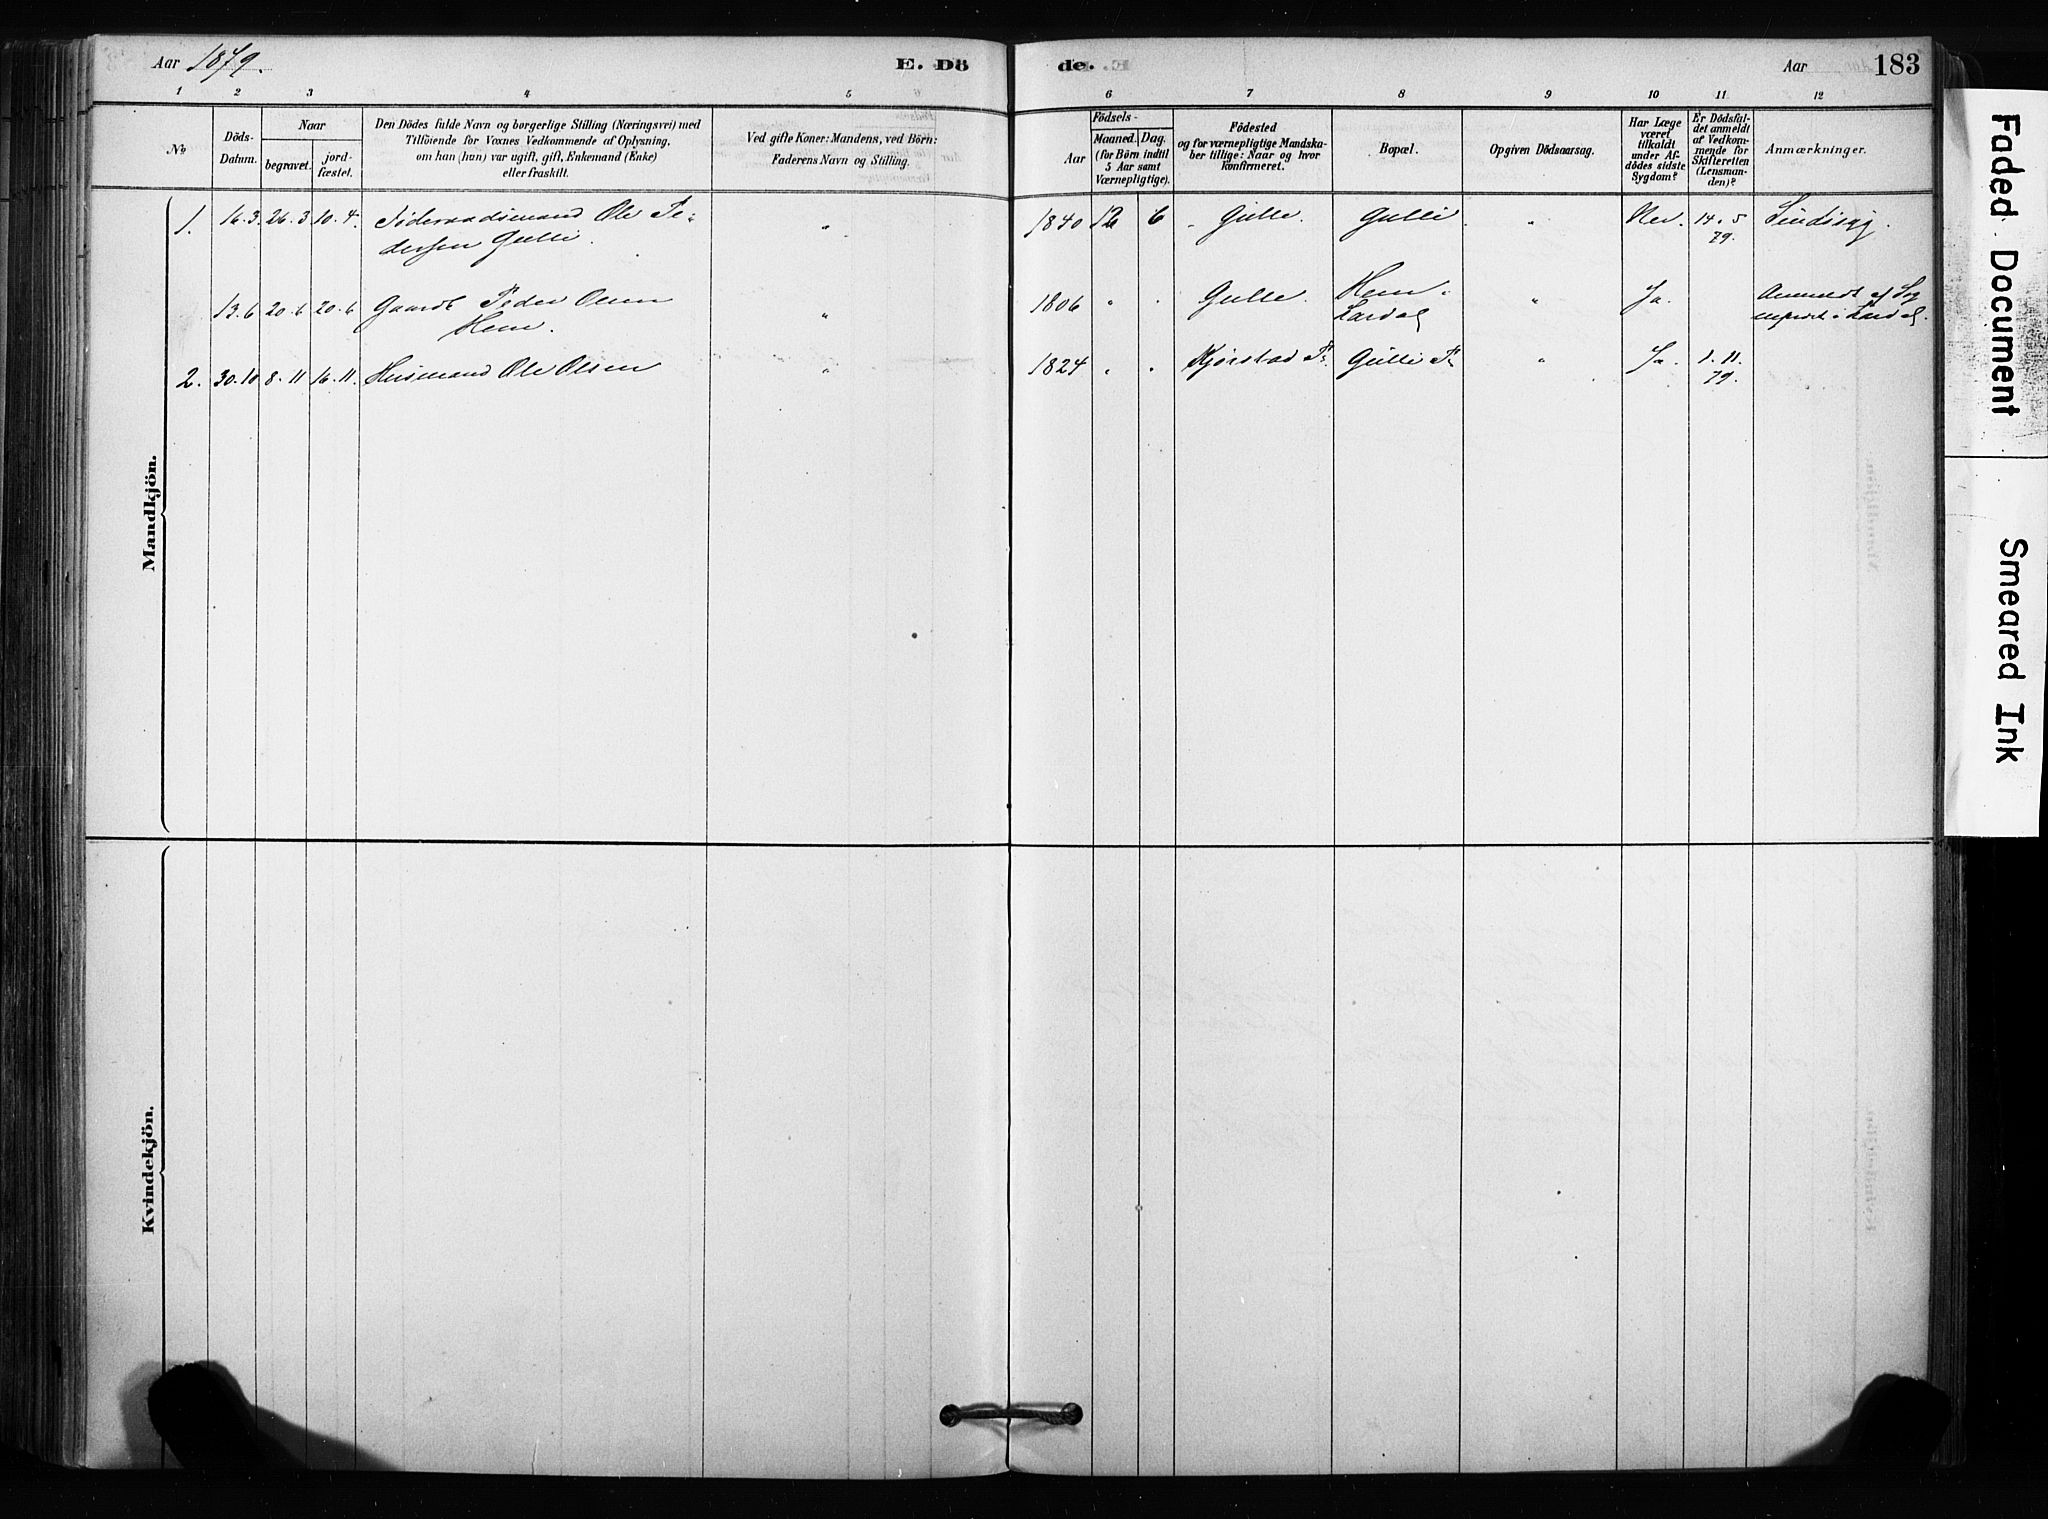 Aar 1879.
E. Dö
de.
Aar
183
1 2 3 4 5 6 7 8 9 10 11 12
No
Döds-
Datum.
Naar
begravet.
jord-
fæstet.
Den Dödes fulde Navn og borgerlige Stilling (Næringsvei) med
Tilföiende for Voxnes Vedkommende af Oplysning,
om han (hun) var ugift, gift, Enkemand (Enke)
eller fraskilt.
Ved gifte Koner: Mandens, ved Börn:
Faderens Navn og Stilling.
Födsels-
Aar
Maaned. Dag.
(for Börn indtil
5 Aar samt
Værnepligtige).
Födested
og for værnepligtige Mandska-
ber tillige: Naar og hvor
konfirmeret.
Bopæl.
Opgiven Dödsaarsag.
Har Læge
været
tilkaldt
under Af-
dödes sidste
Sygdom?
Er Dödsfal-
det anmeldt
af Vedkom-
mende for
Skifteretten
(Lensman-
den)?
Anmærkninger.
Mandkjön.
1. 16.3. 26.3 10.4. Föderaadsmand Ole Pe- " 1840 12 6 Gulle. Gulli " Nei. 14.5 Sindsyg.
dersen Gulli. 79.
13.6 20.6 20.6 Gaardb Peder Olsen " 1806 " " Gulle. Hem " Ja. Anmeldt af Sog
Hem. Lardal nepræst i Lardal.
2. 30.10 8.11 16.11. Husmand Ole Olsen " 1824 " " Kjørstad Pl. Gulli Pl. " Ja. 1.11.
79.
Kvindekjön.
Faded Document
Smeared Ink